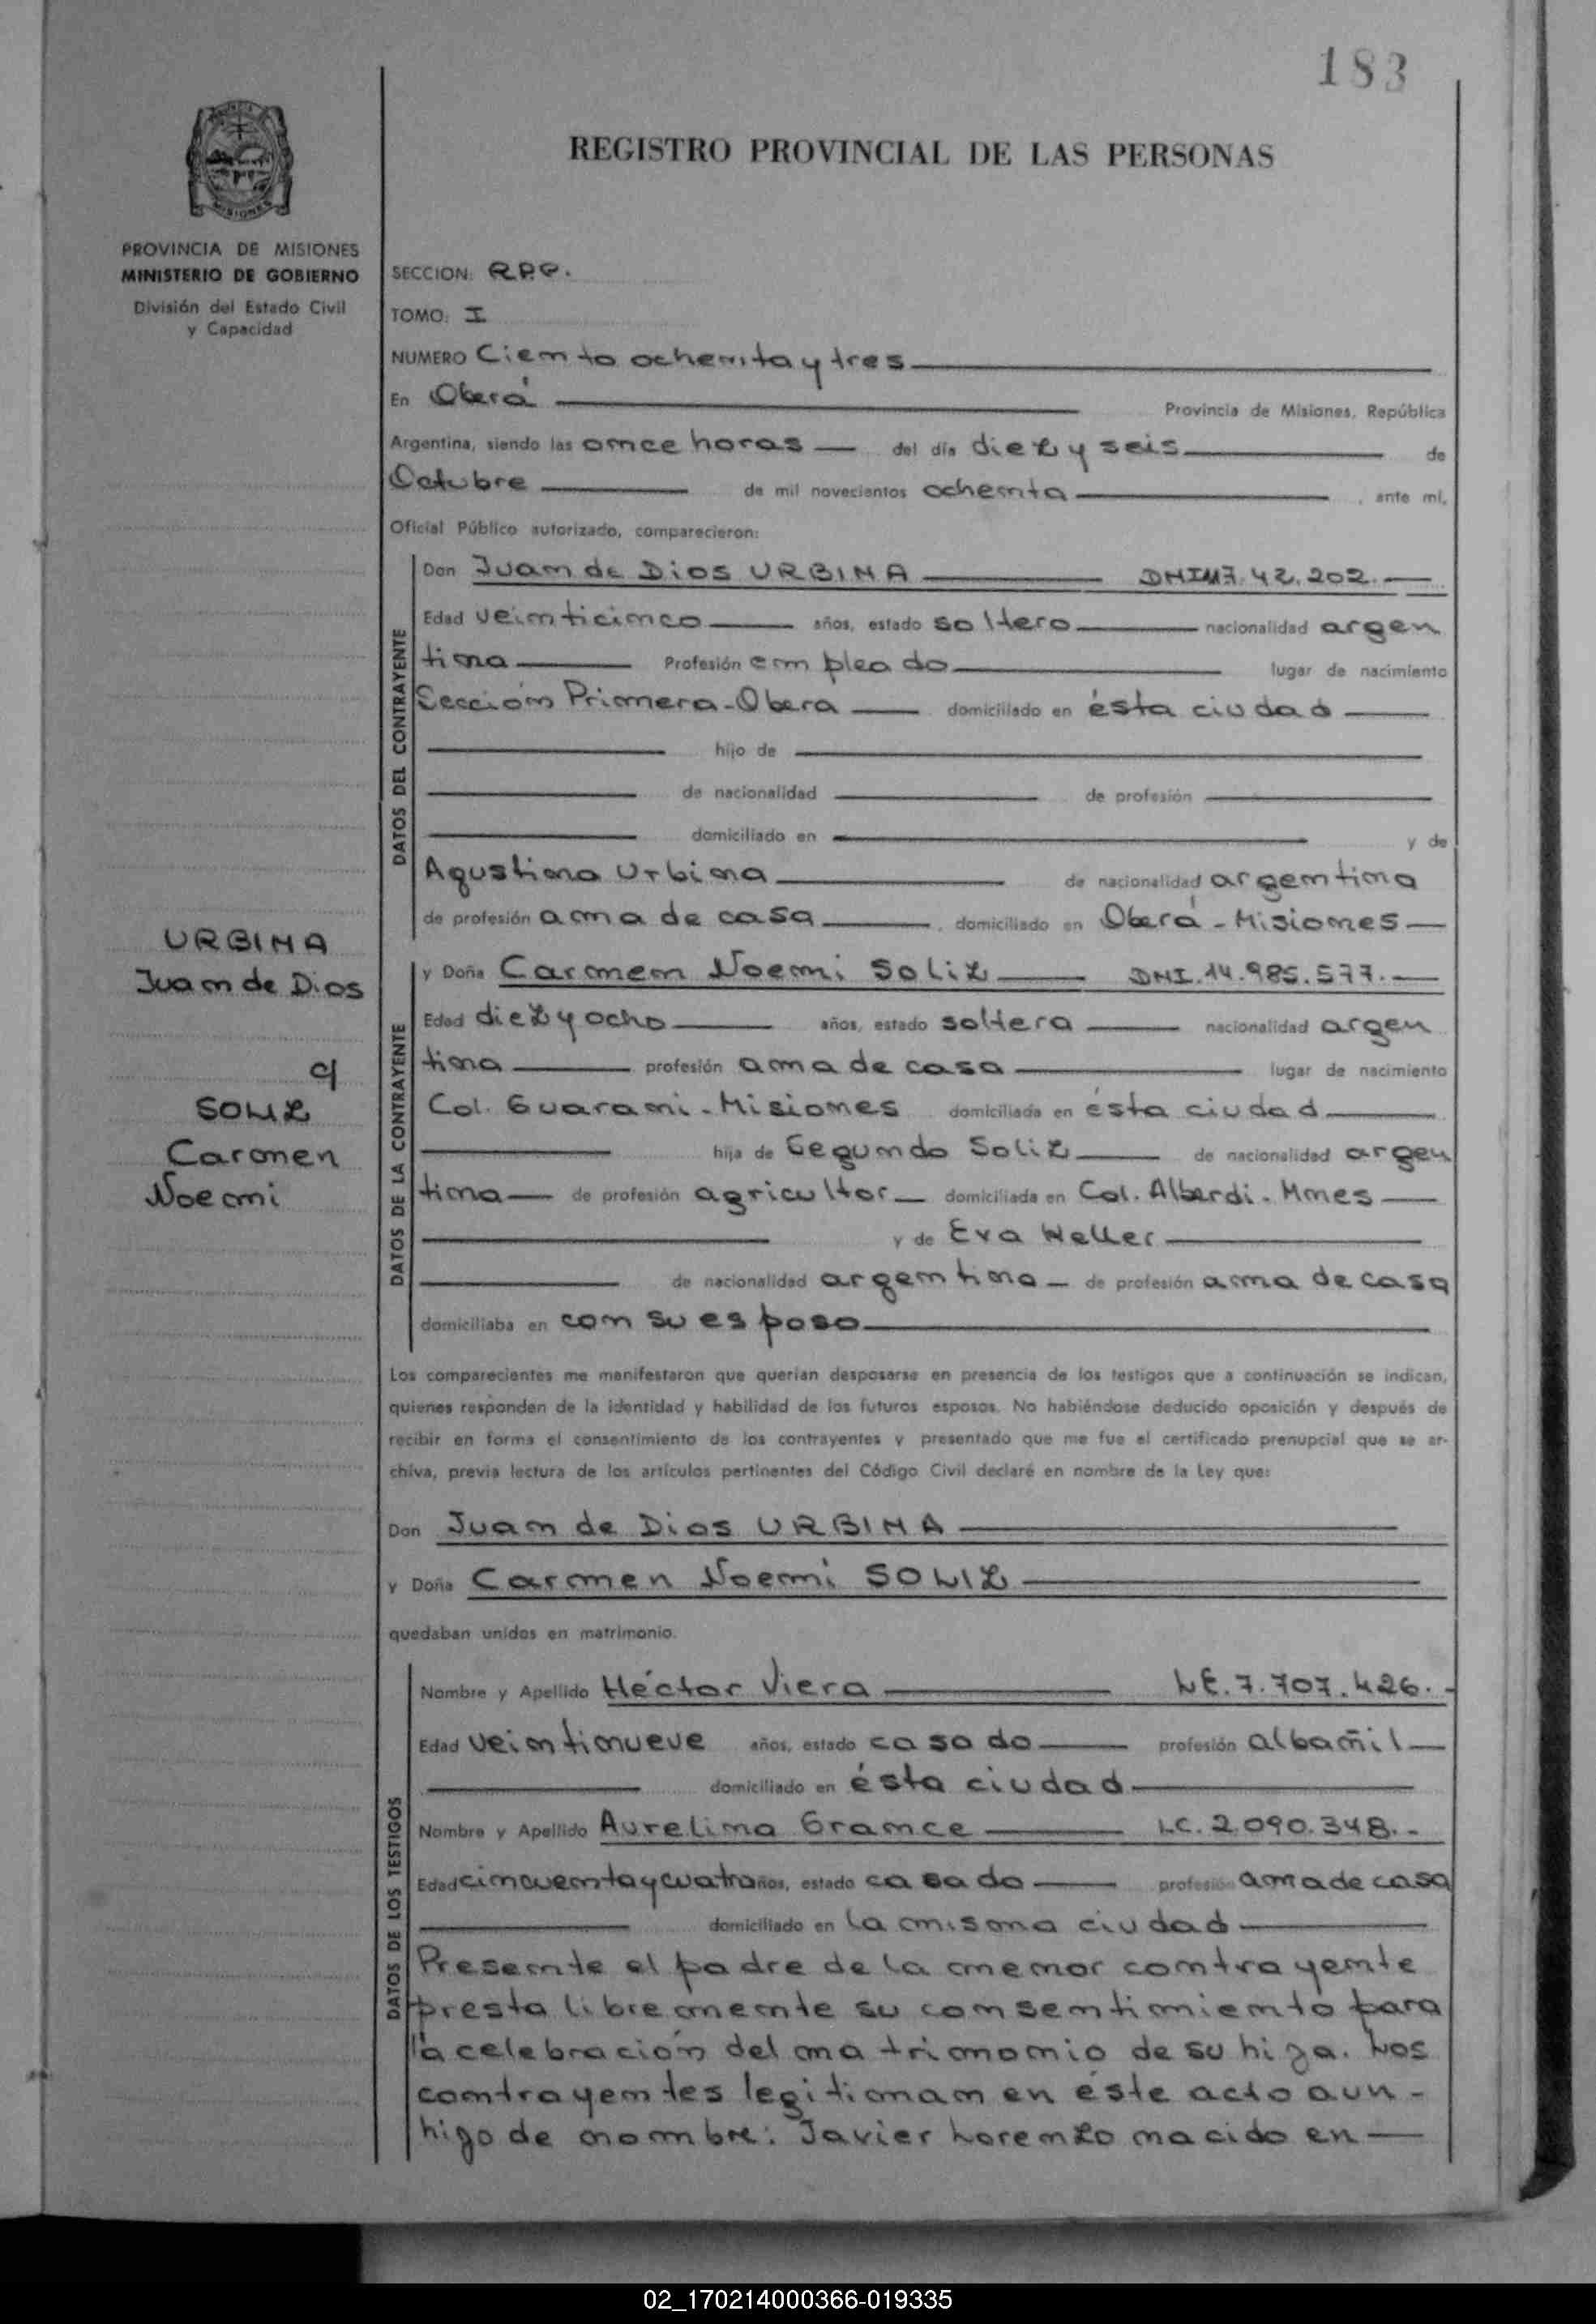 183
REGISTRO PROVINCIAL DE LAS PERSONAS
PROVINCIA DE MISIONES
MINISTERIO DE GOBIERNO
División del Estado Civil
y Capacidad
SECCION: R.P.P.
TOMO: I
NUMERO Ciento ochenta y tres
En Oberá Provincia de Misiones, República
Argentina, siendo las once horas del día diez y seis de
Octubre de mil novecientos ochenta, ante mí,
Oficial Público autorizado, comparecieron:
DATOS DEL CONTRAYENTE
Don Juan de Dios URBINA
Edad veinticinco años, estado soltero nacionalidad argen
tina Profesión empleado lugar de nacimiento
Sección Primera-Obera domiciliado en ésta ciudad
hijo de
de nacionalidad de profesión
domiciliado en y de
Agustina Urbina de nacionalidad argentina
de profesión ama de casa, domiciliado en Oberá - Misiones
URBINA
Juan de Dios
c/
SOLIZ
Carmen
Noemi
DATOS DE LA CONTRAYENTE
y Doña Carmen Noemi Soliz DNI. 14.985.577.
Edad diez y ocho años, estado soltera nacionalidad argen
tina profesión ama de casa lugar de nacimiento
Col. Guarani - Misiones domiciliada en ésta ciudad
hija de Segundo Soliz de nacionalidad argen
tina de profesión agricultor domiciliada en Col. Alberdi - Mnes
y de Eva Weller
de nacionalidad argentina de profesión ama de casa
domiciliaba en con su esposo
Los comparecientes me manifestaron que querían desposarse en presencia de los testigos que a continuación se indican,
quienes responden de la identidad y habilidad de los futuros esposos. No habiéndose deducido oposición y después de
recibir en forma el consentimiento de los contrayentes y presentado que me fue el certificado prenupcial que se ar-
chiva, previa lectura de los artículos pertinentes del Código Civil declaré en nombre de la Ley que:
Don Juan de Dios URBINA
y Doña Carmen Noemi SOLIZ
quedaban unidos en matrimonio.
DATOS DE LOS TESTIGOS
Nombre y Apellido Héctor Viera LE. 7.707.426.-
Edad veintinueve años, estado casado profesión albañil
domiciliado en ésta ciudad
Nombre y Apellido Aurelina Grance LC. 2.090.348.-
Edad cincuenta y cuatro años, estado casado profesión ama de casa
domiciliado en la misma ciudad
Presente el padre de la menor contrayente
presta libremente su consentimiento para
la celebración del matrimonio de su hija. Los
contrayentes legitiman en éste acto a un-
hijo de nombre: Javier Lorenzo nacido en
02_170214000366-019335